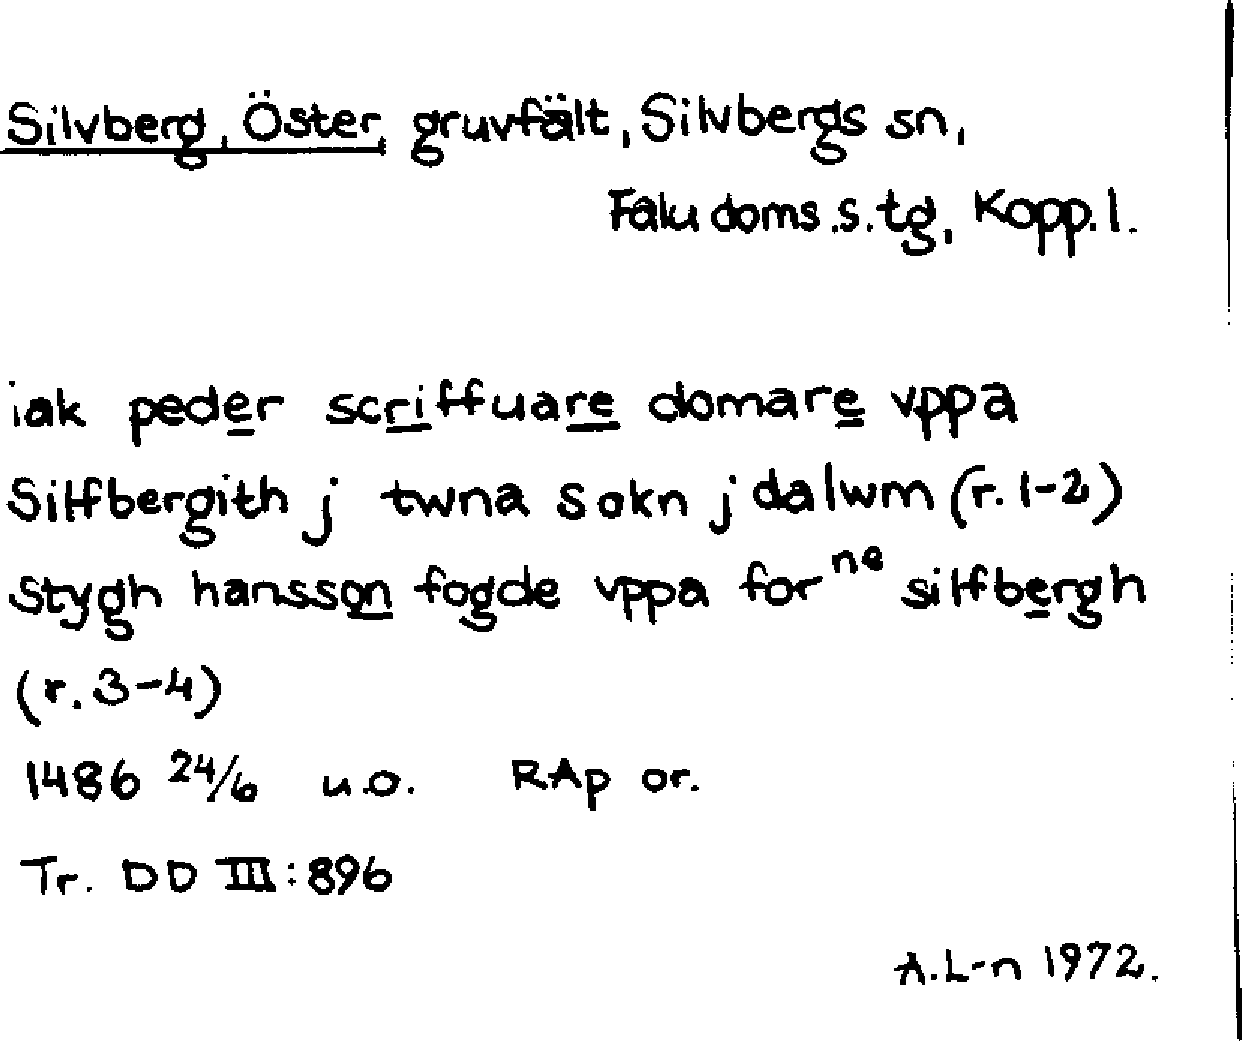 Silvberg, Öster, gruvfält, Silvbergs sn,
Falu doms.s.tg, Kopp.l.
iak peder scriffuare domare vppa
Silfbergith j twna sokn j dalwm (r. 1-2)
Stygh hansson fogde vppa for ne silfbergh
(r. 3-4)
1486 24/6 u.o. RAp or.
Tr. DD III:896
A.L-n 1972.